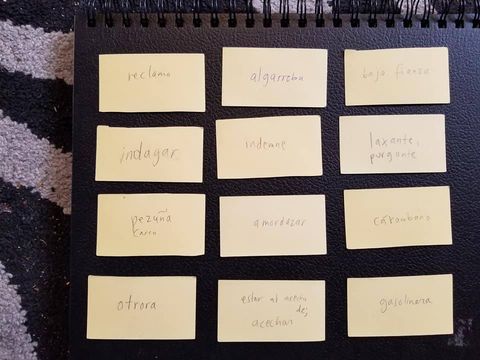 reclamo
algarroba
bajo fianza
indagar
indemne
laxante,
purgante
pezuña
casco
amordazar
carámbano
otrora
estar al acecho
de;
acechar
gasolinera